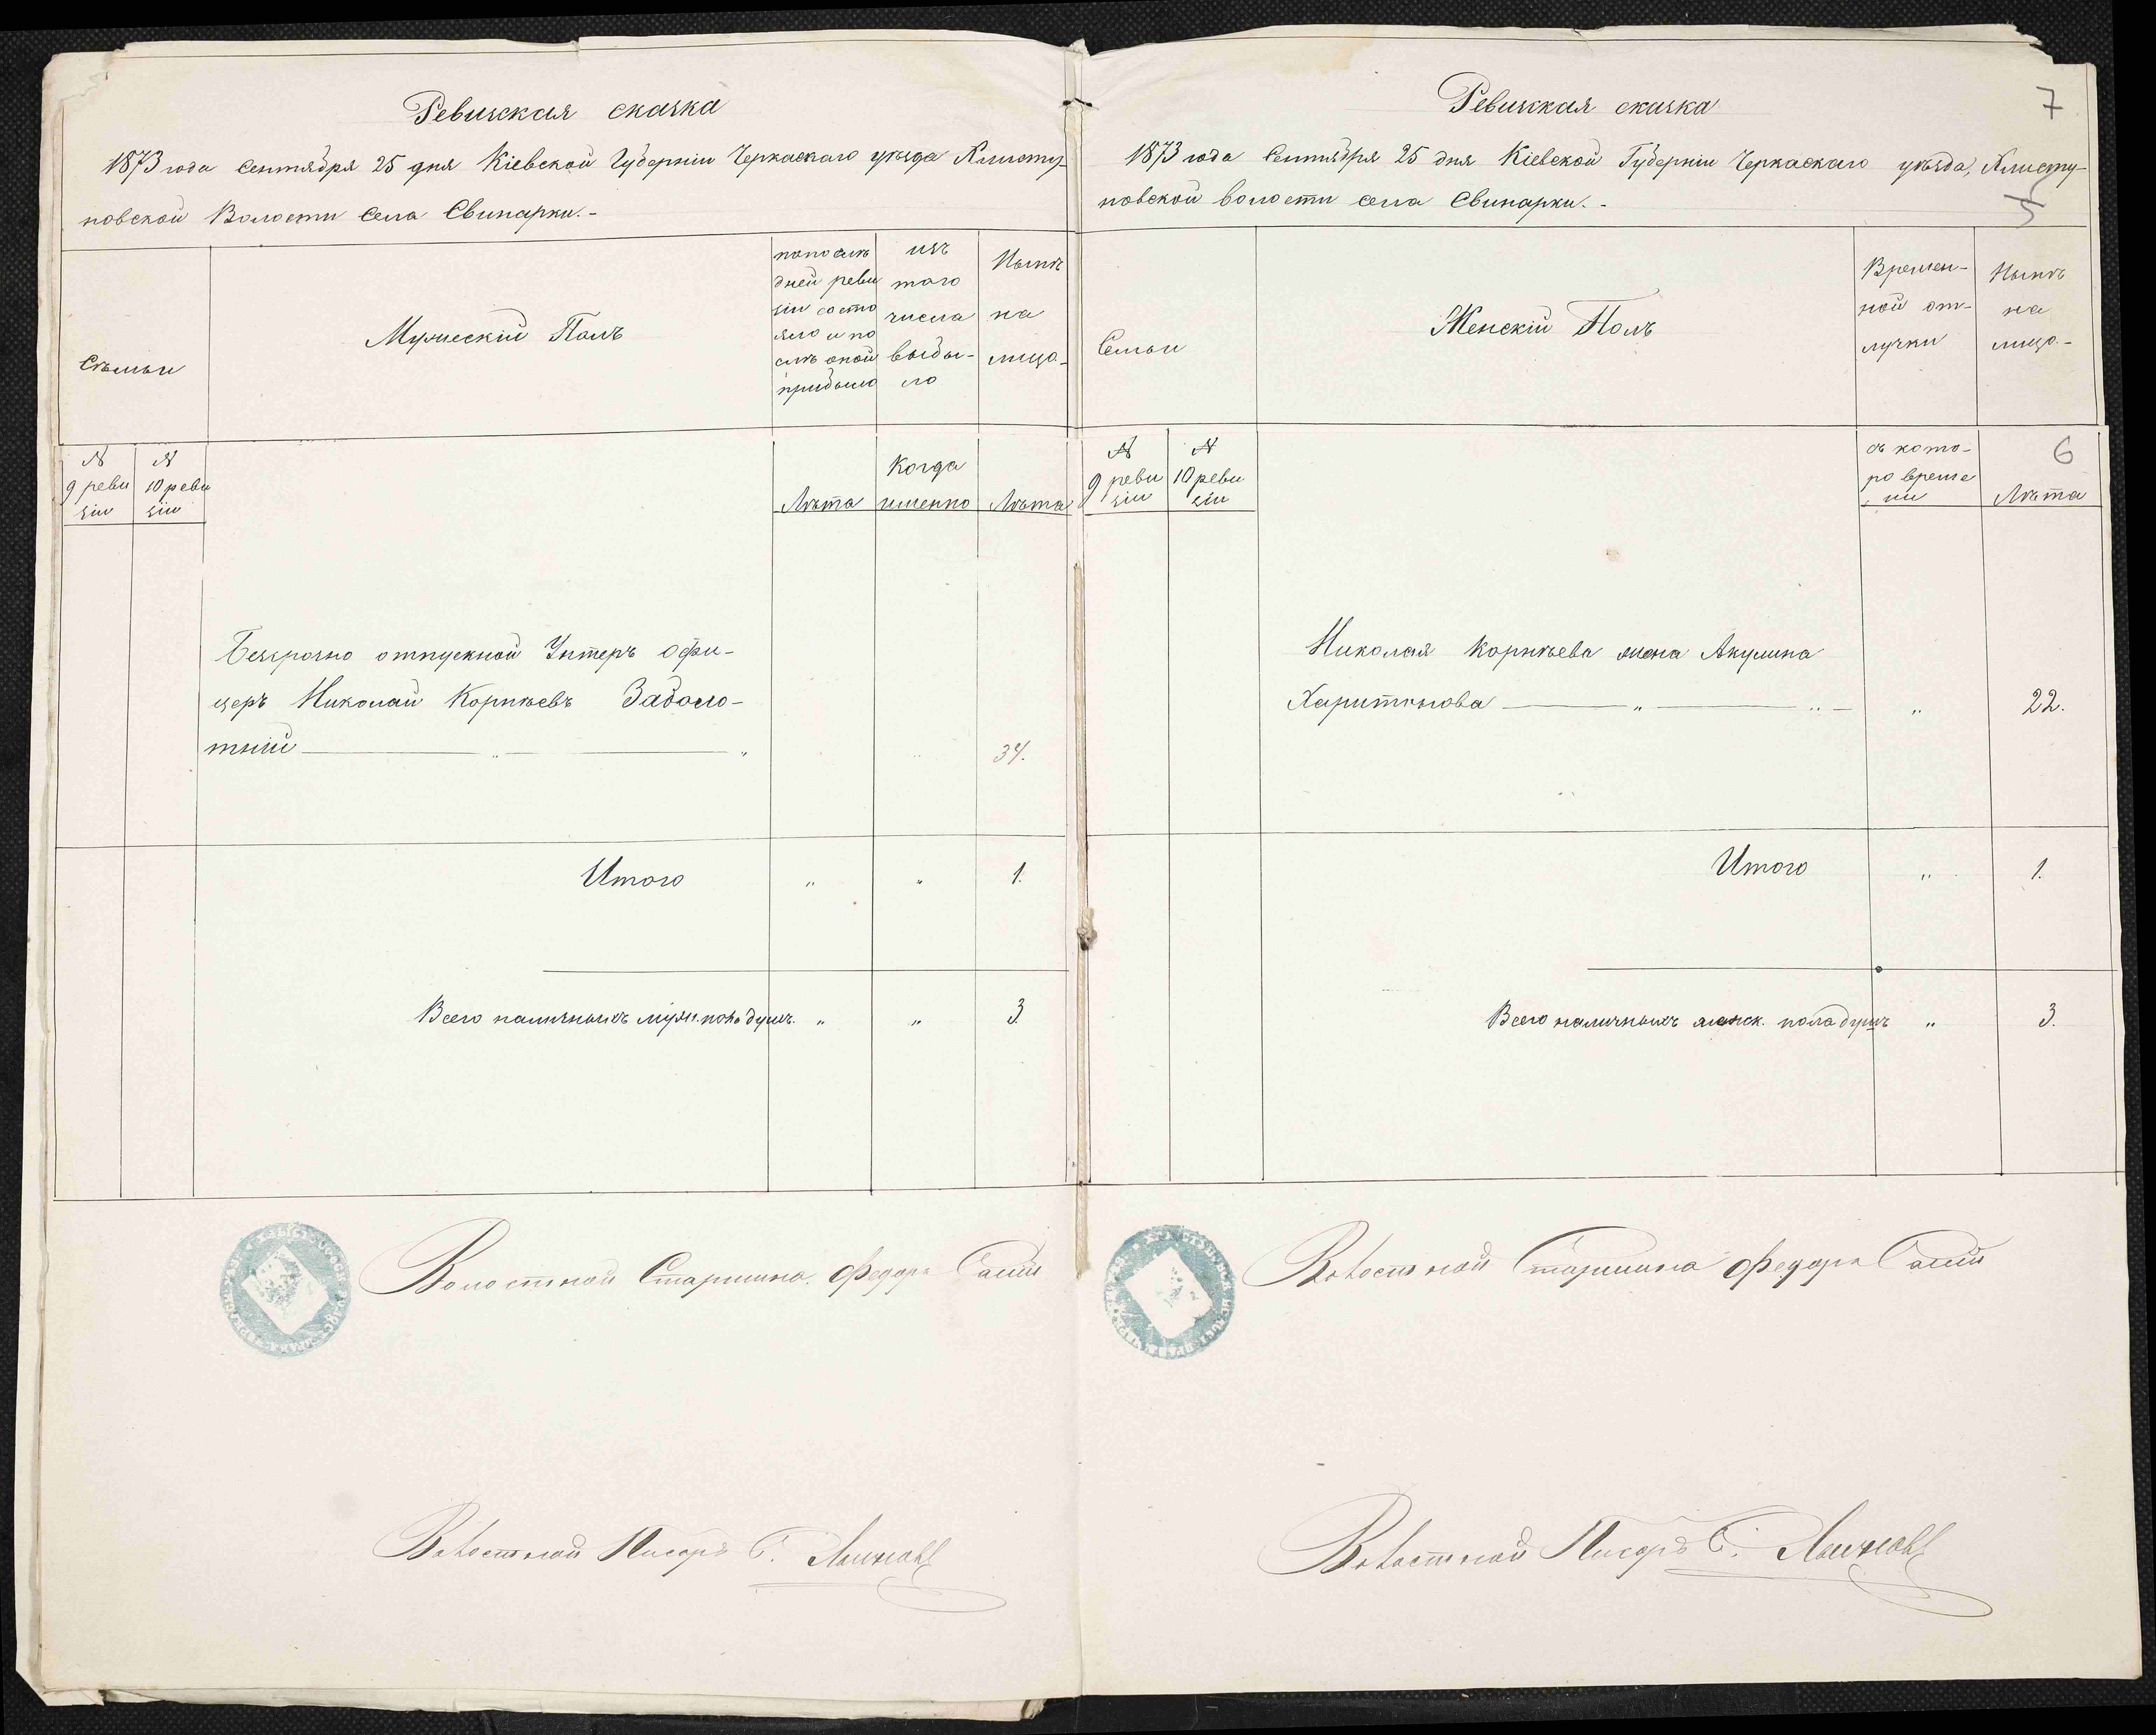 Ревизкая сказка
1873 года Сентября 25 дня Кіевской Губерніи Черкаскаго уѣзда Хлисту-
новской Волости Села Свинарки.-
Сѣмьи
Мужескій Полъ
по послѣ
дней реви
зіи состо
яло и по
слѣ оной
прибыло
изъ
того
числа
выбы-
ло
Нынѣ
на
лицо-
№
9 реви
зіи
№
10 реви
зіи
Лѣта
Когда
именно
Лѣта
Безсрочно отпускной Унтеръ офи-
церъ Николай Корнѣевъ Заболо-
тній
34.
Итого " " 1.
Всего наличныхъ муж. пола душъ. " " 3
Волостной Старшина Федоръ
Волостной Писарь
Ревизкая сказка
7
1873 года Сентября 25 дня Кіевской Губерніи Черкаскаго уѣзда, Хлисту-
новской волости села Свинарки.-
5
Семьи
Женскій Полъ
Времен-
ной от-
лучки
Нынѣ
на
лицо-
№
9 реви
зіи
№
10 реви
зіи
съ кото-
ро време
ни
6
Лѣта
Николая Корнѣева жена Акулина
Харитонова " 22.
Итого " 1.
Всего наличныхъ женск. пола душъ " 3.
Волостной Старшина Федоръ
Волостной Писарь